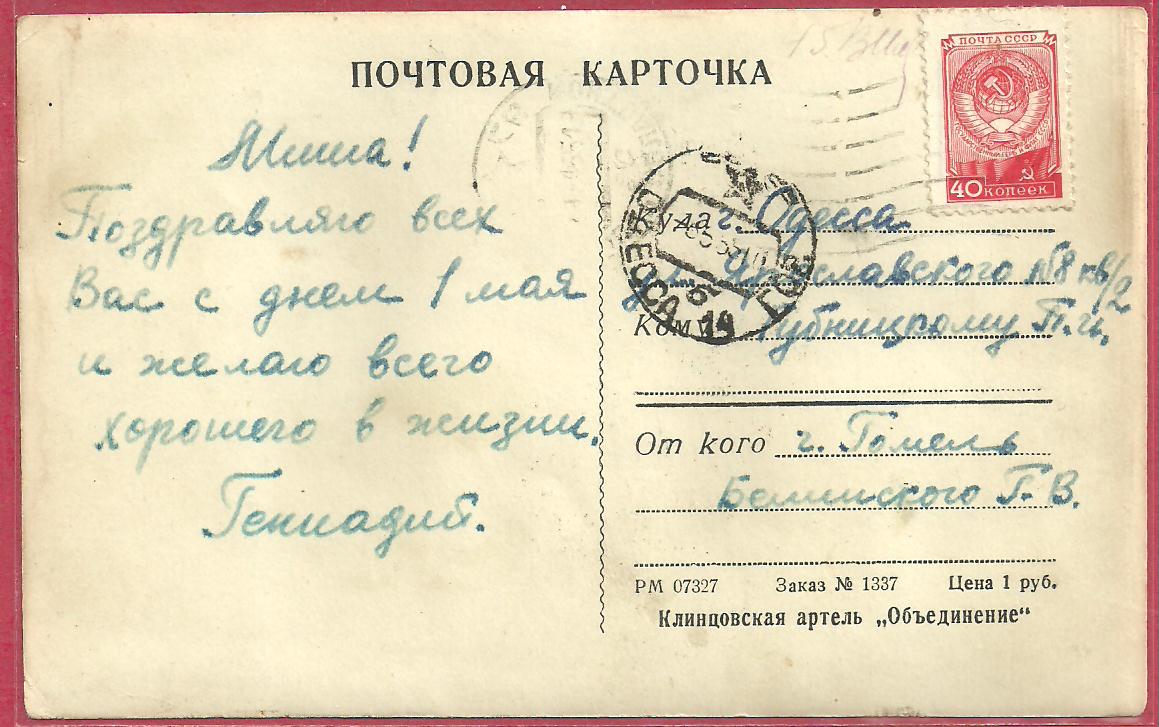 ПОЧТОВАЯ КАРТОЧКА
ПОЧТА СССР
40 КОПЕЕК
Миша!
Поздравляю всех
Вас с днем 1 мая
и желаю всего
хорошего в жизни.
Геннадий.
Куда г. Одесса
ул. Ярославского №8 кв/2
Кому
П.И.
ОДЕССА
От кого г. Гомель
Г. В.
РМ 07327 Заказ № 1337 Цена 1 руб.
Клинцовская артель „Объединение“